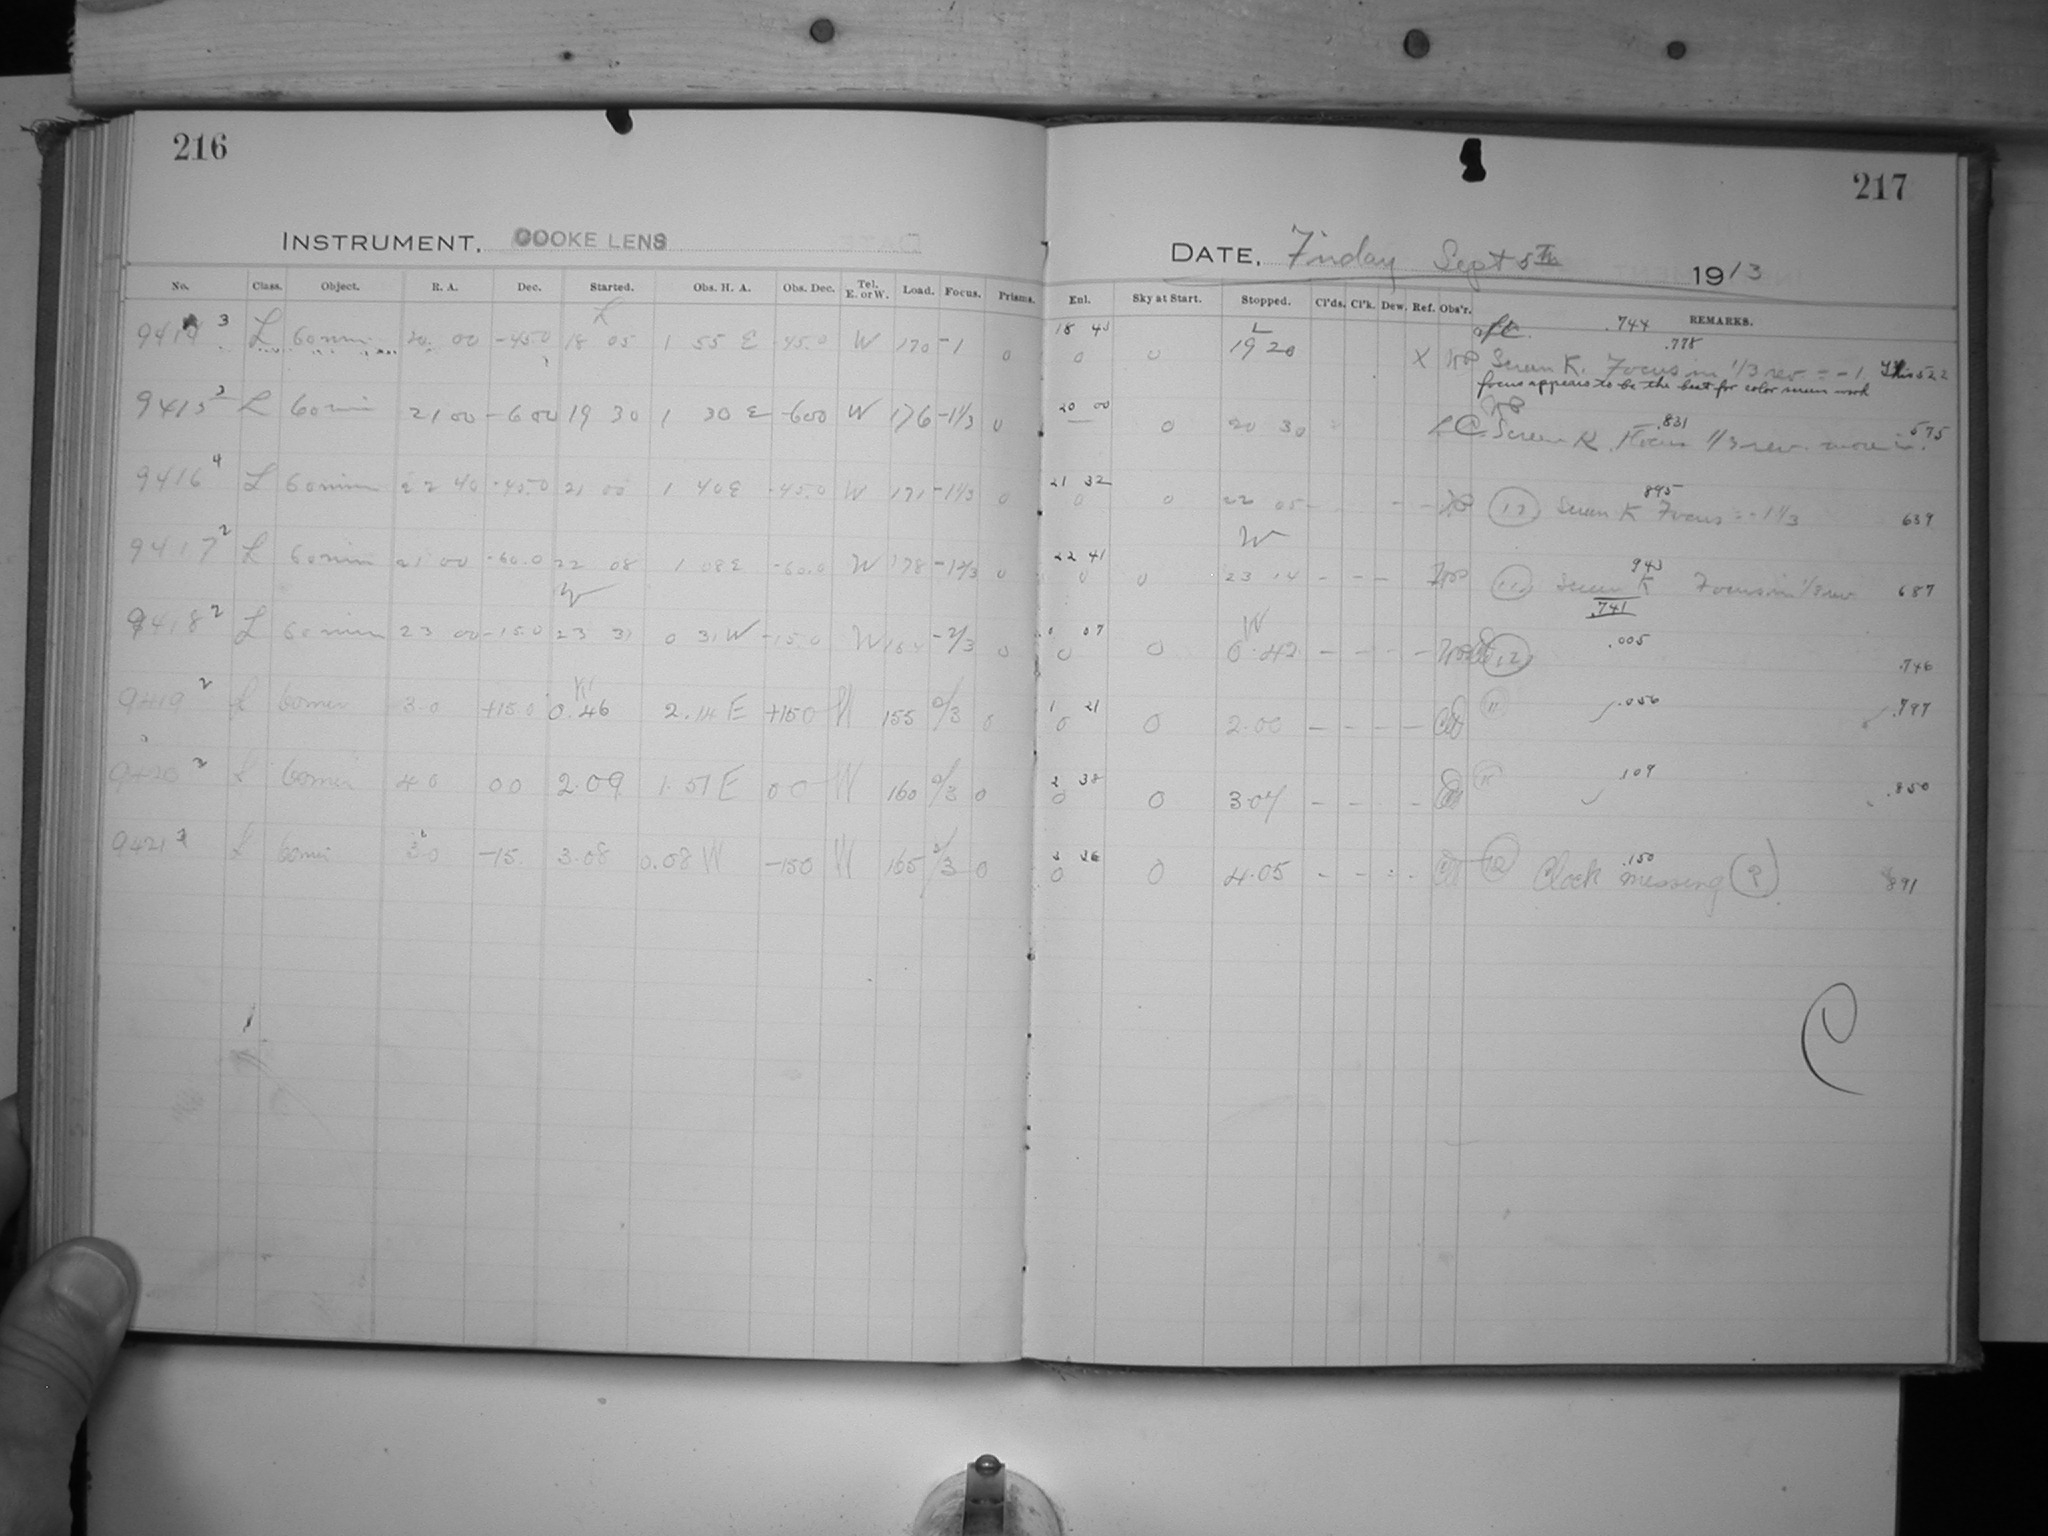 216
217
INSTRUMENT. COOKE LENS
DATE. Friday Sept 5th 1913
No. Class. Object. R. A. Dec. Started. Obs. H. A. Obs. Dec. Tel. E. or W. Load. Focus. Prisms.
Enl. Sky at Start. Stopped. Cl'ds. Cl'k. Dew. Ref. Obs'r. REMARKS.
L
L
.744
.778
9414 3 L 60 min 20 00 -45.0 18 05 1 55 E -45.0 W 170 -1 0
18 45 0 0 19 20 X Screen K. Focus in 1/3 rev = -1 This 522
focus appears to be the best for color screen work
9415 2 L 60 min 21 00 -600 19 30 1 30 E -600 W 176 -1 1/3 0
20 00 0 20 30 Screen K. Focus 1/3 rev. more in. .831 575
9416 4 L 60 min 22 40 -45.0 21 00 1 40 E -45.0 W 171 -1 1/3 0
21 32 0 0 22 05 - - - Screen K Focus = -1 1/3 895 639
W
9417 2 L 60 min 21 00 -60.0 22 08 1 08 E -60.0 W 178 -1 2/3 0
22 41 0 0 23 14 - - - Screen K Focus in 1/3 rev 943 687
W
.741
9418 2 L 60 min 23 00 -15.0 23 31 0 31 W -15.0 W -2/3 0
W
0 07 0 0 0.42 - - - - 12 .005 .746
W
9419 2 L 60 min 3.0 +15.0 0.46 2.14 E +150 W 155 2/3 0
1 21 0 0 2.00 - - - - 11 .056 .797
9420 3 L 60 min 4 0 0 0 2.09 1.51 E 0 0 W 160 2/3 0
2 38 0 0 3.07 - - - - .109 .850
9421 L 60 min 3.0 -15. 3.08 0.08 W -150 W 165 2/3 0
3 36 0 0 4.05 - - - - 12 Clock messing (?) .150 891
C